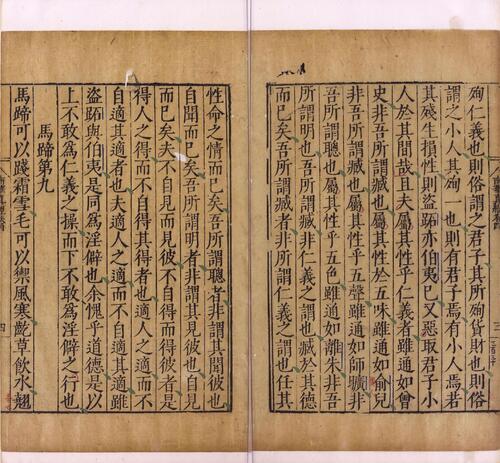 殉仁義也則俗謂之君子其所殉貨財也則俗
謂之小人其殉一也則有君子焉有小人焉若
其殘生損性則盜跖亦伯夷已又惡取君子小
人於其間哉且夫屬其性乎仁義者雖通如曾
史非吾所謂臧也屬其性於五味雖通如俞兒
非吾所謂臧也屬其性乎五聲雖通如師曠非
吾所謂聰也屬其性乎五色雖通如離朱非吾
所謂明也吾所謂臧非仁義之謂也臧於其德
而已矣吾所謂臧者非所謂仁義之謂也任其
性命之情而已矣吾所謂聰者非謂其聞彼也
自聞而已矣吾所謂明者非謂其見彼也自見
而已矣夫不自見而見彼不自得而得彼者是
得人之得而不自得其得者也適人之適而不
自適其適者也夫適人之適而不自適其適雖
盜跖與伯夷是同爲淫僻也余愧乎道德是以
上不敢爲仁義之操而下不敢爲淫僻之行也
馬蹄第九
馬蹄可以踐霜雪毛可以禦風寒齕草飲水翹